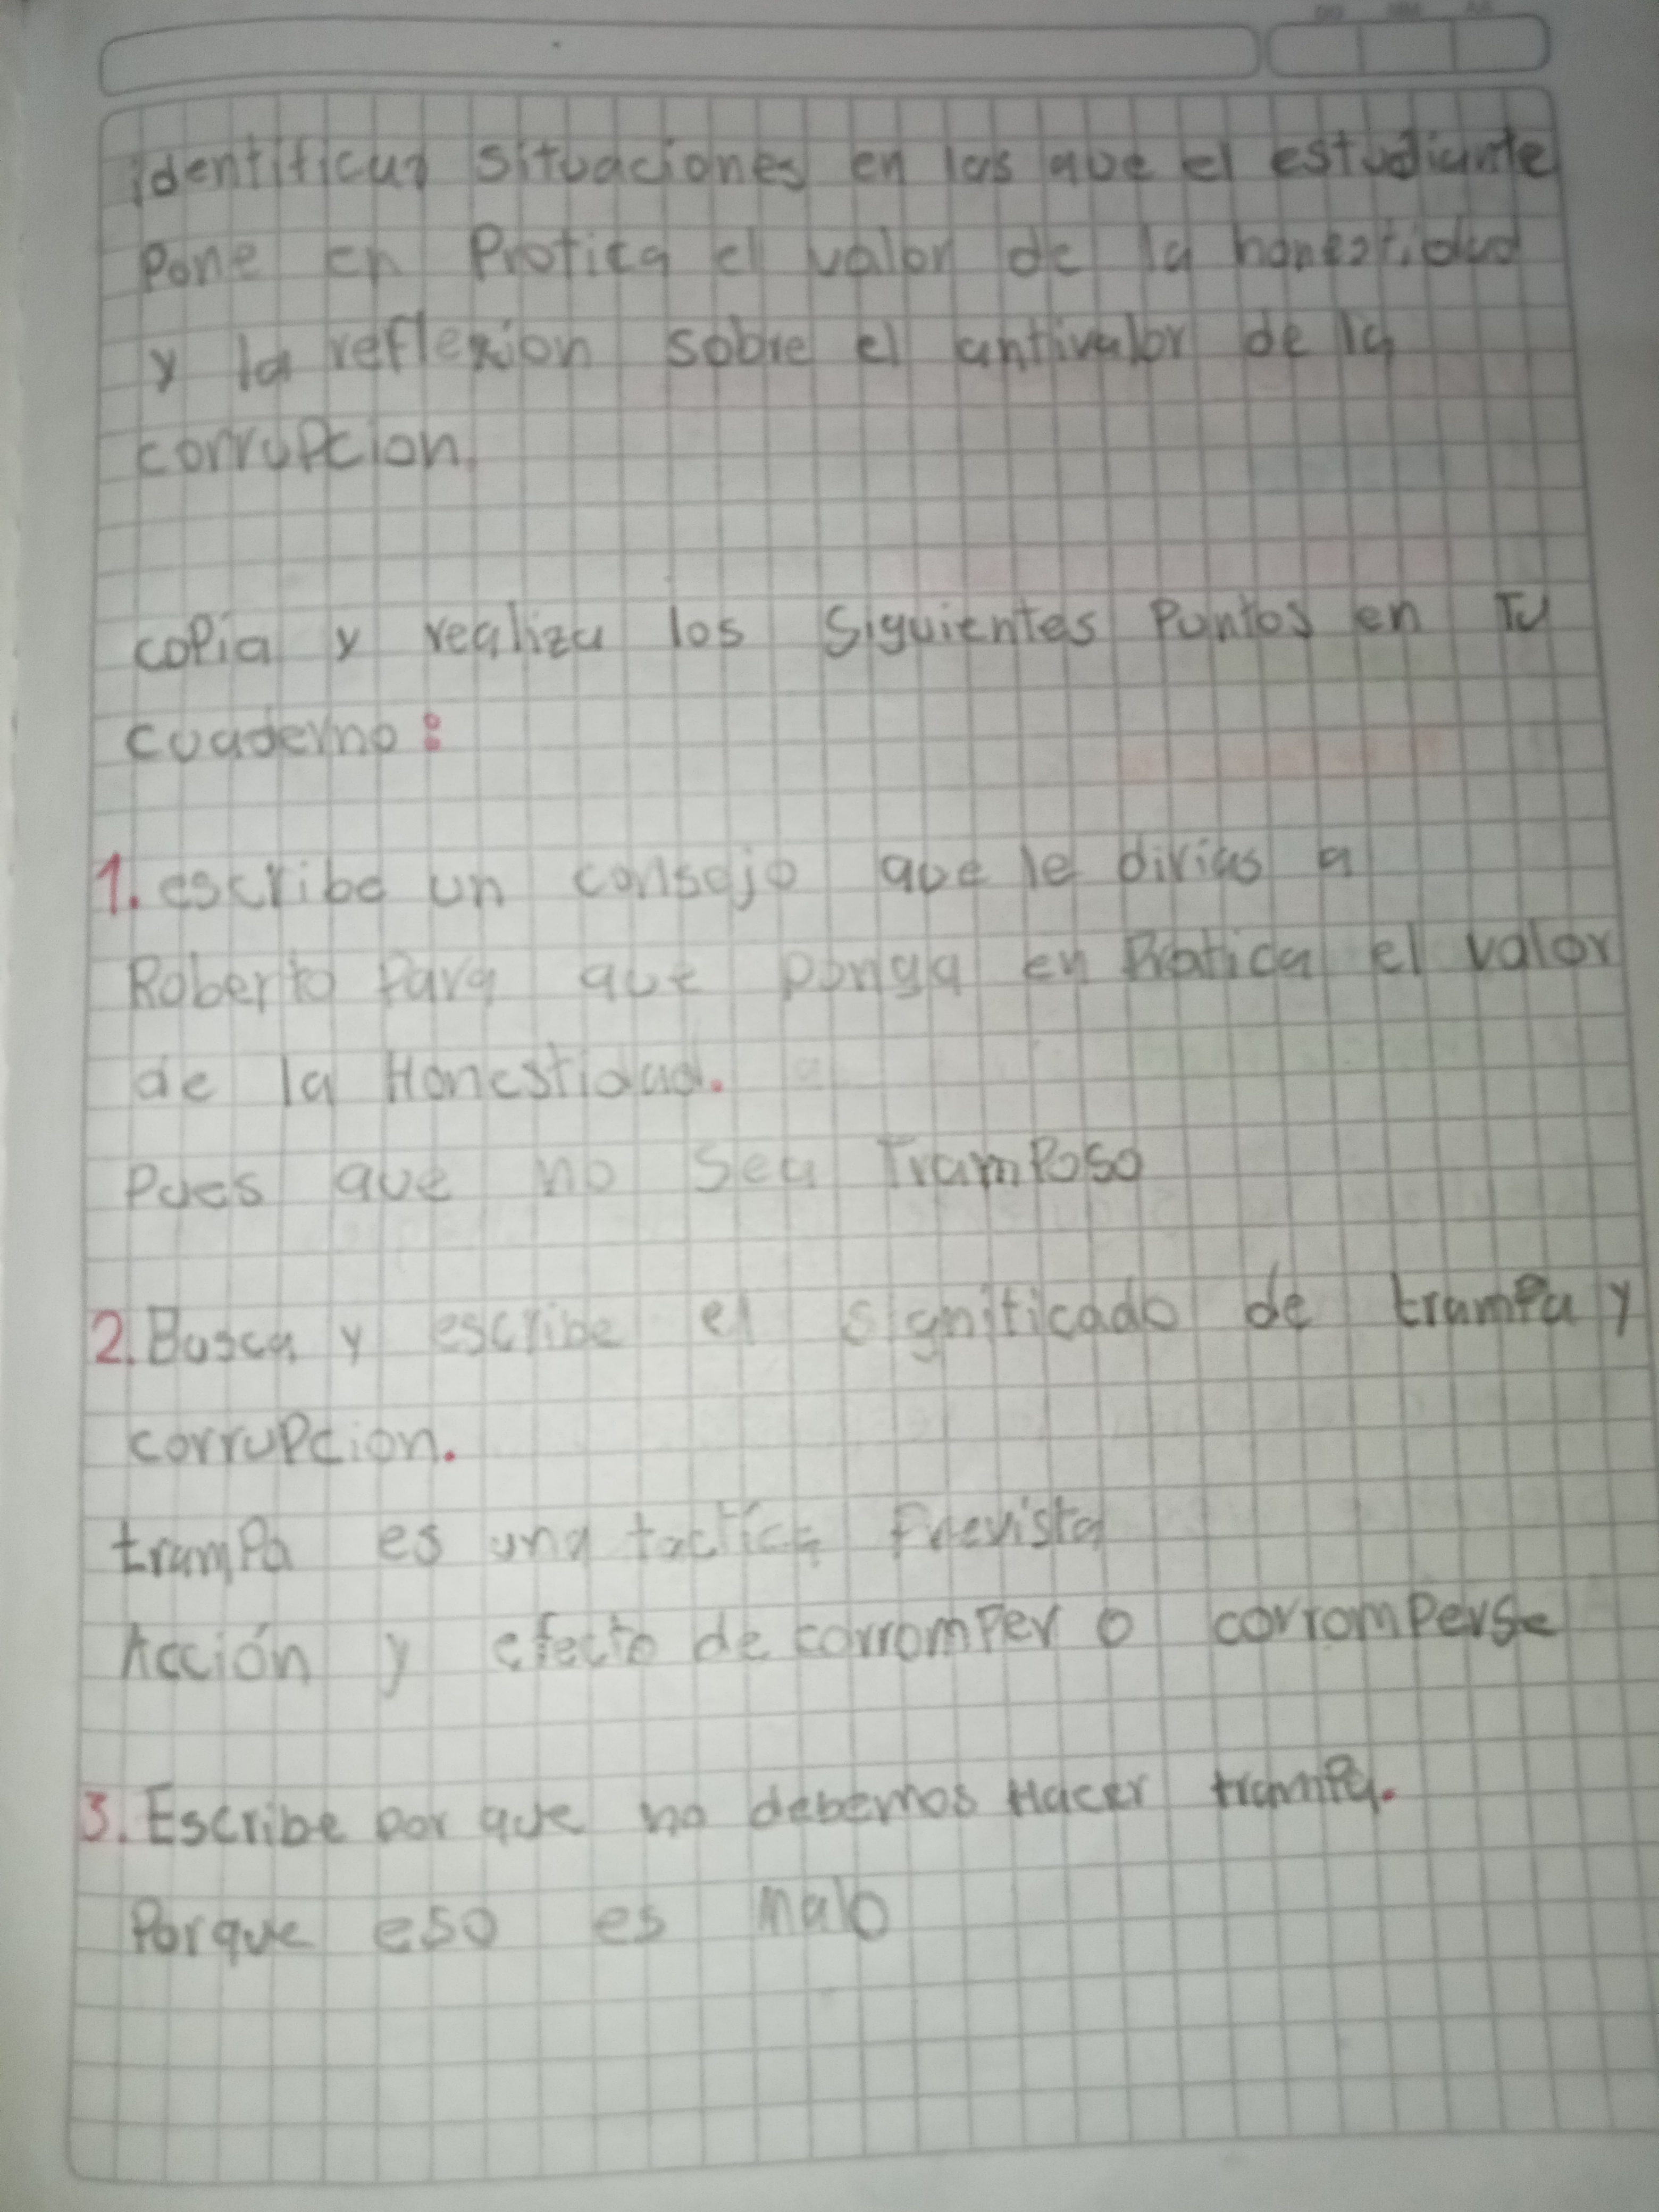 identificar situaciones en las que el estudiante
pone en Protica el valor de la honestidad
y la reflexion sobre el antivalor de la
corrupcion.
copia y realiza los siguientes Puntos en Tu
cuaderno:
1. escribe un consejo que le dirias a
Roberto Para que ponga en Pratica el valor
de la Honestidad.
Pues que no sea Tramposo
2. Busca y escribe el significado de trampa y
corrupcion.
trampa es una tactica Prevista
Acción y efecto de corromper o corromperse
3. Escribe por que no debemos Hacer trampa.
Porque eso es malo